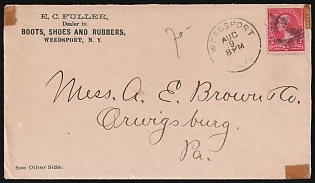 E. C. FULLER,
Dealer in
BOOTS, SHOES AND RUBBERS,
WEEDSPORT, N. Y.
WEEDSPORT
AUG
9
8 PM
Mess. A. E. Brown & Co.
Orwigsburg,
Pa.
See Other Side.